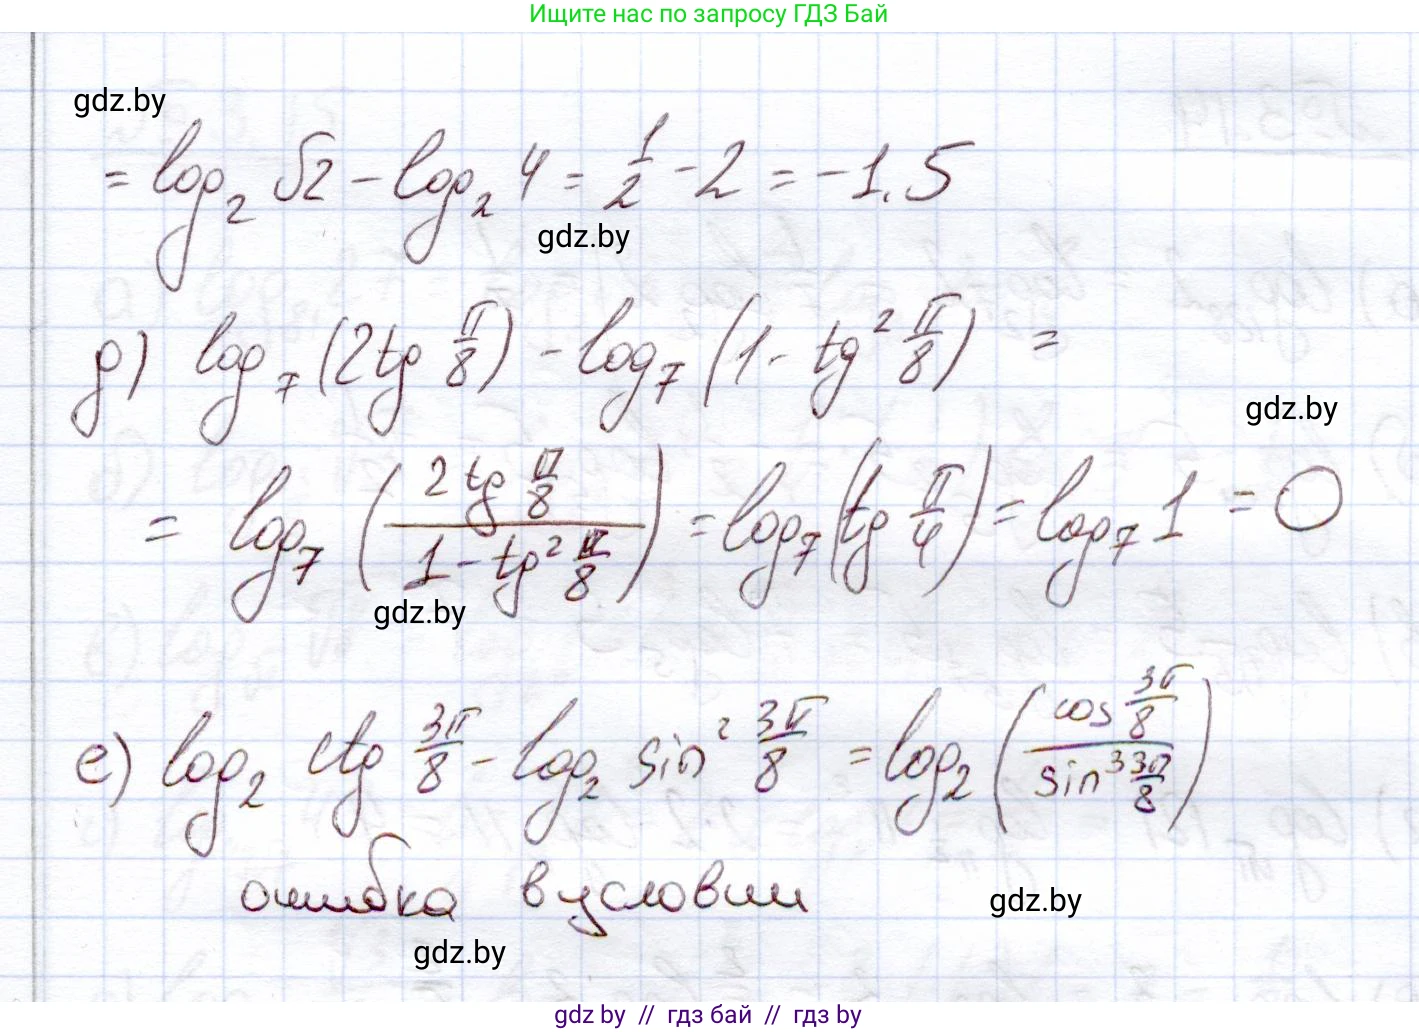 Ищите нас по запросу ГДЗ Бай
gdz.by
= log₂ √2 - log₂ 4 = 1/2 - 2 = -1.5
gdz.by
д) log₇ (2tg π/8) - log₇ (1 - tg² π/8) =
gdz.by
= log₇ (2tg π/8 / 1 - tg² π/8) = log₇ (tg π/4) = log₇ 1 = 0
gdz.by
е) log₂ ctg 3π/8 - log₂ sin² 3π/8 = log₂ (cos 3π/8 / sin³ 3π/8)
ошибка в условии
gdz.by
gdz.by
gdz by // гдз бай // гдз by